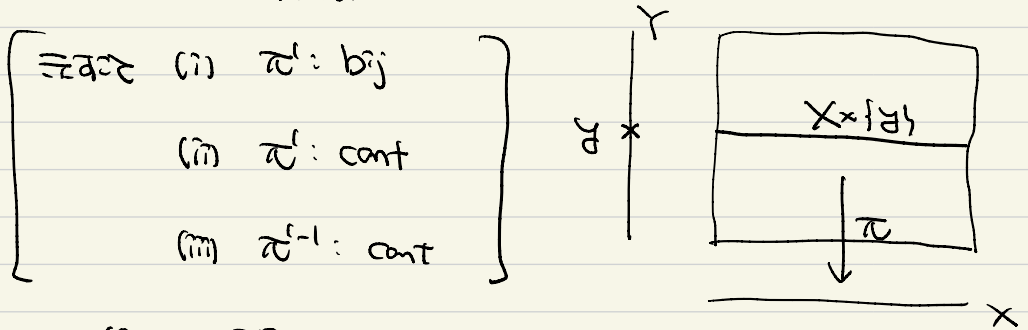 示すこと (i) π': bij
(ii) π': cont
(iii) π'⁻¹: cont
Y
y
X×{y}
π
X